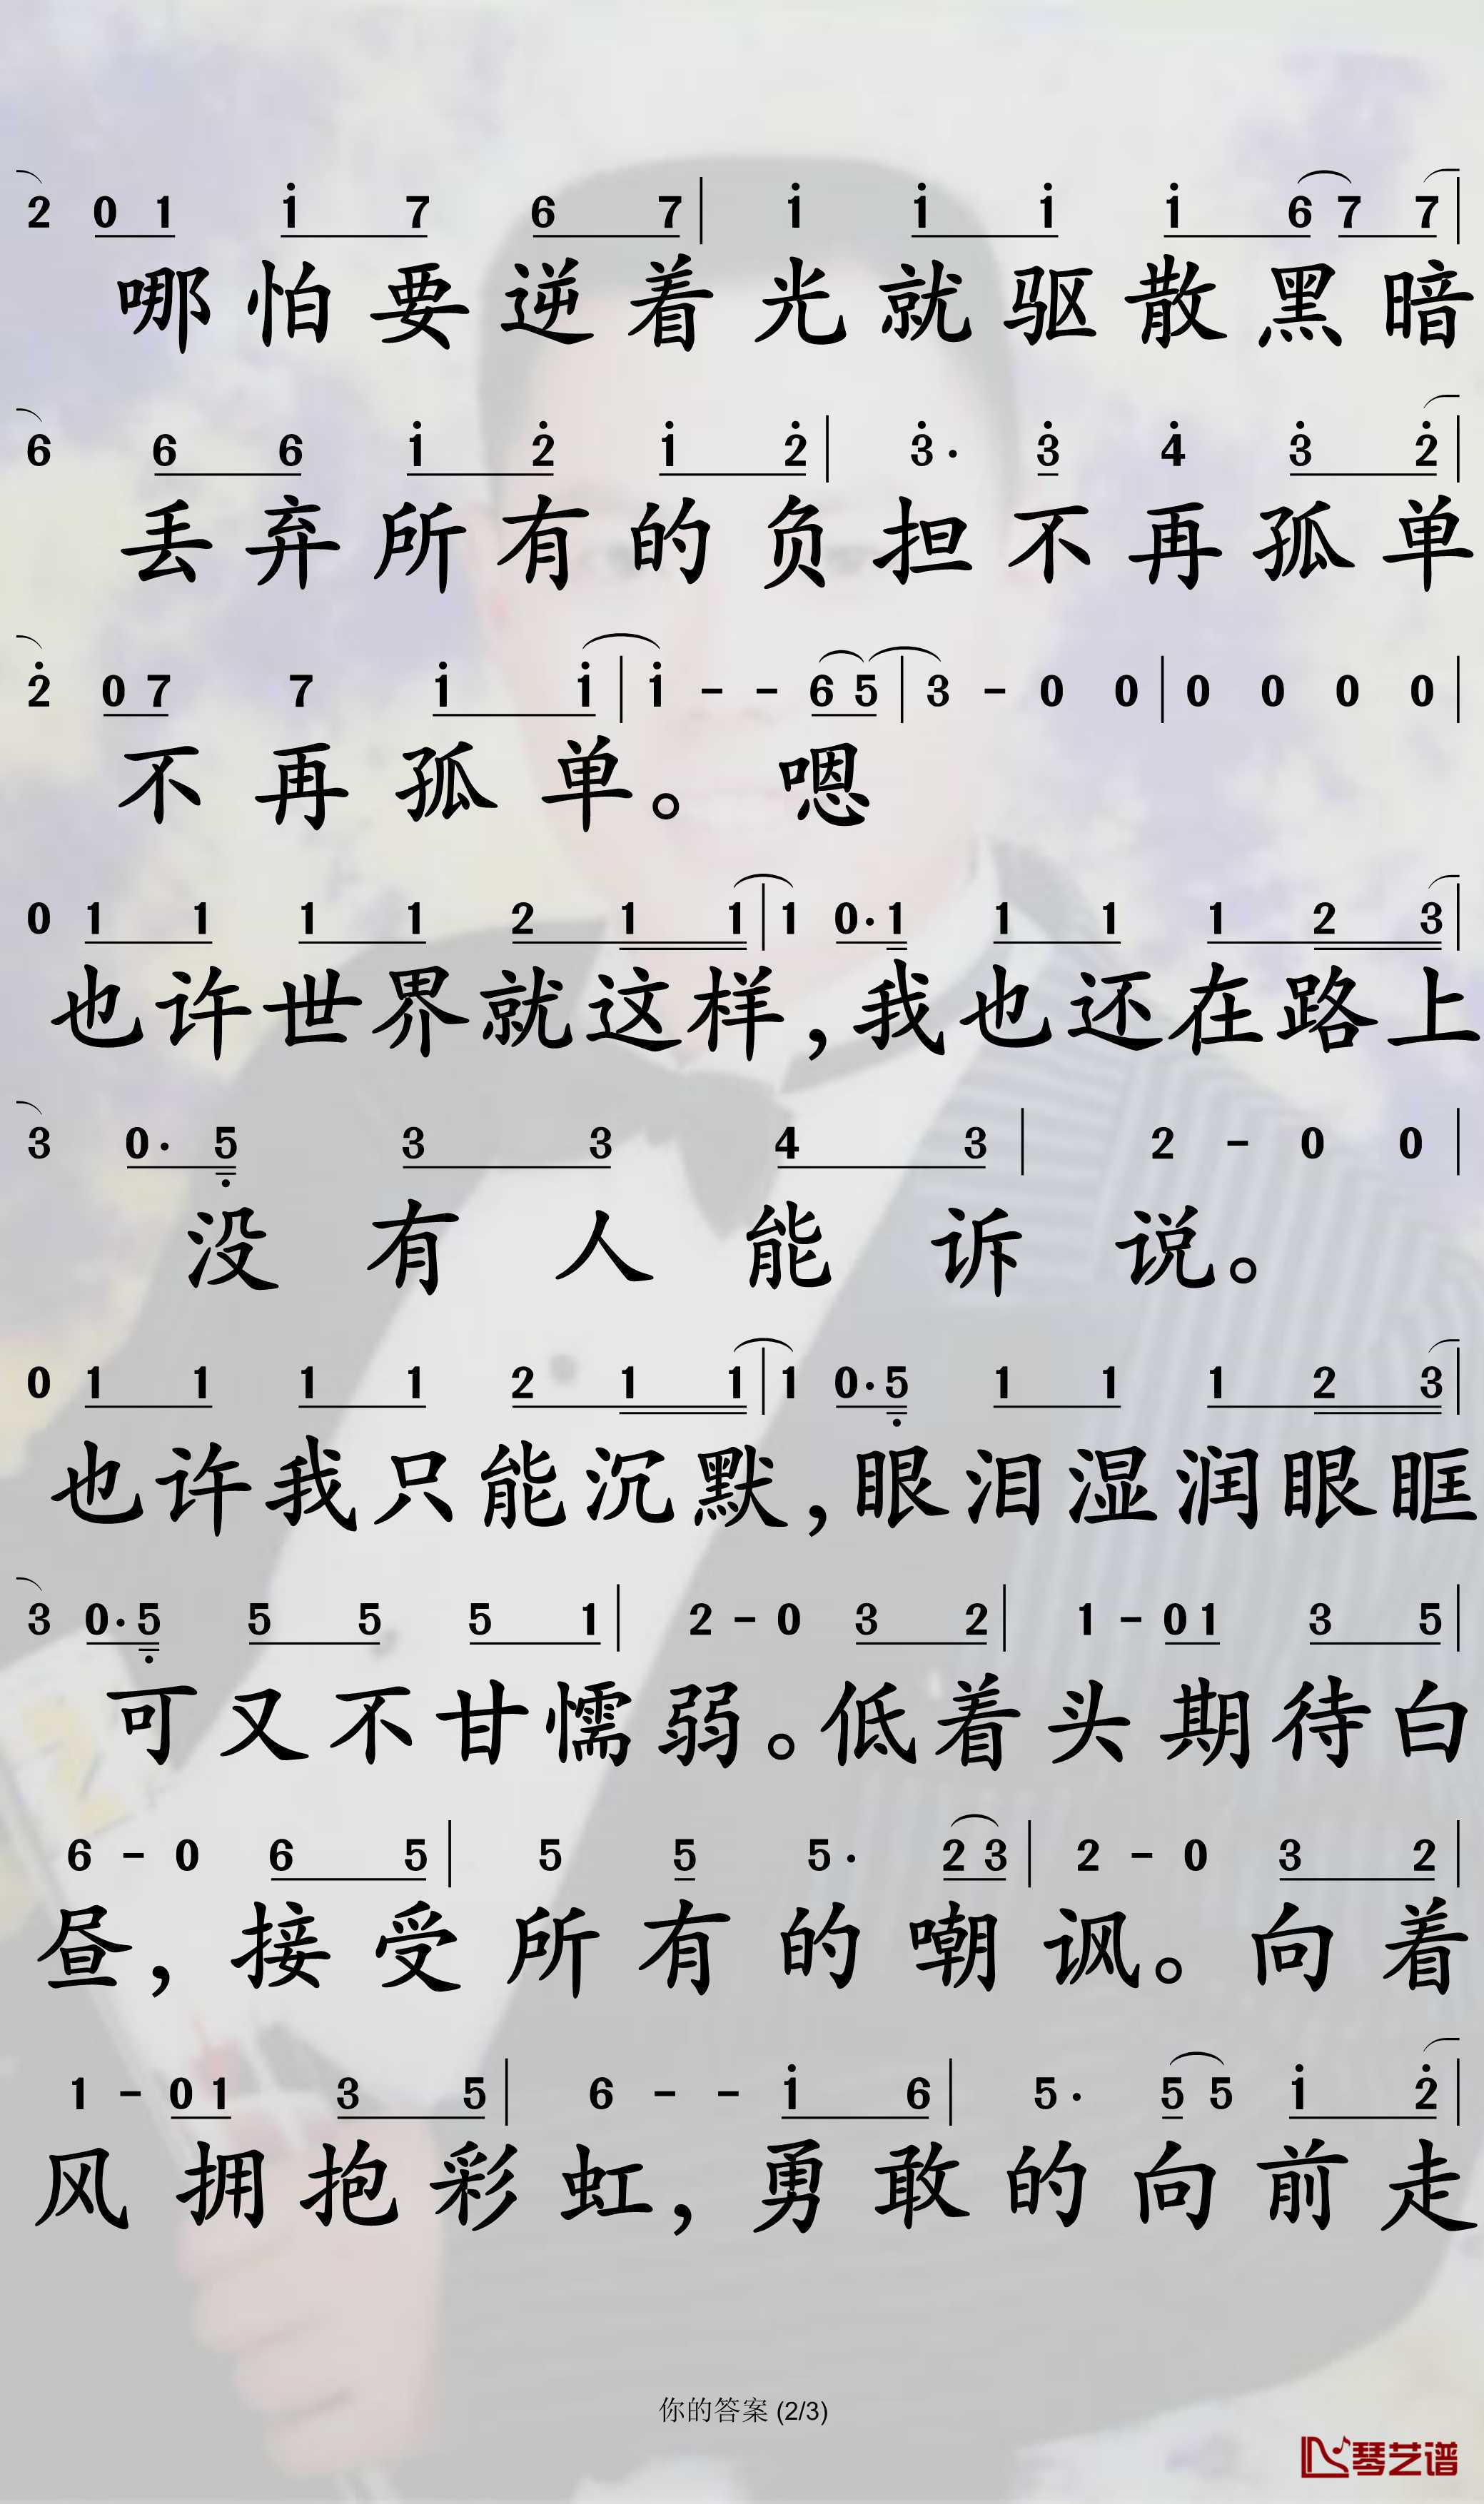 2 0 1 i 7 6 7 | i i i i 6 7 7 |
哪怕要逆着光就驱散黑暗
6 6 6 i 2 i 2 | 3· 3 4 3 2 |
丢弃所有的负担不再孤单
2 0 7 7 i i | i - - 6 5 | 3 - 0 0 | 0 0 0 0 |
不再孤单。嗯
0 1 1 1 1 2 1 1 | 1 0· 1 1 1 1 2 3 |
也许世界就这样,我也还在路上
3 0· 5 3 3 4 3 | 2 - 0 0 |
没有人能诉说。
0 1 1 1 1 2 1 1 | 1 0· 5 1 1 1 2 3 |
也许我只能沉默,眼泪湿润眼眶
3 0· 5 5 5 5 1 | 2 - 0 3 2 | 1 - 0 1 3 5 |
可又不甘懦弱。低着头期待白
6 - 0 6 5 | 5 5 5· 2 3 | 2 - 0 3 2 |
昼,接受所有的嘲讽。向着
1 - 0 1 3 5 | 6 - - i 6 | 5· 5 5 i 2 |
风拥抱彩虹,勇敢的向前走
你的答案 (2/3)
琴艺谱